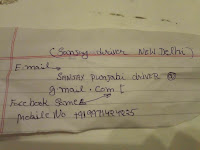 (Sanjay driver New Delhi)
Email →
SANJAY punjabi driver @
gmail.com [
Facebook Same
Mobile No +919971484235